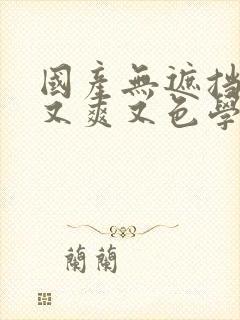 國產無遮挡
又爽又色學
蘭蘭